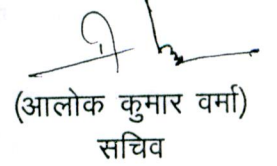 (आलोक कुमार वर्मा)
सचिव